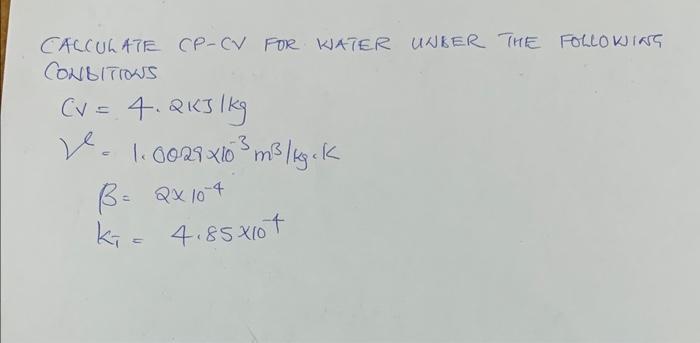 CALCULATE CP-CV FOR WATER UNDER THE FOLLOWING
CONDITIONS
CV = 4.2KJ/kg
V^l = 1.0029x10^-3 m^3/kg.K
β = 2x10^-4
k_T = 4.85x10^-4